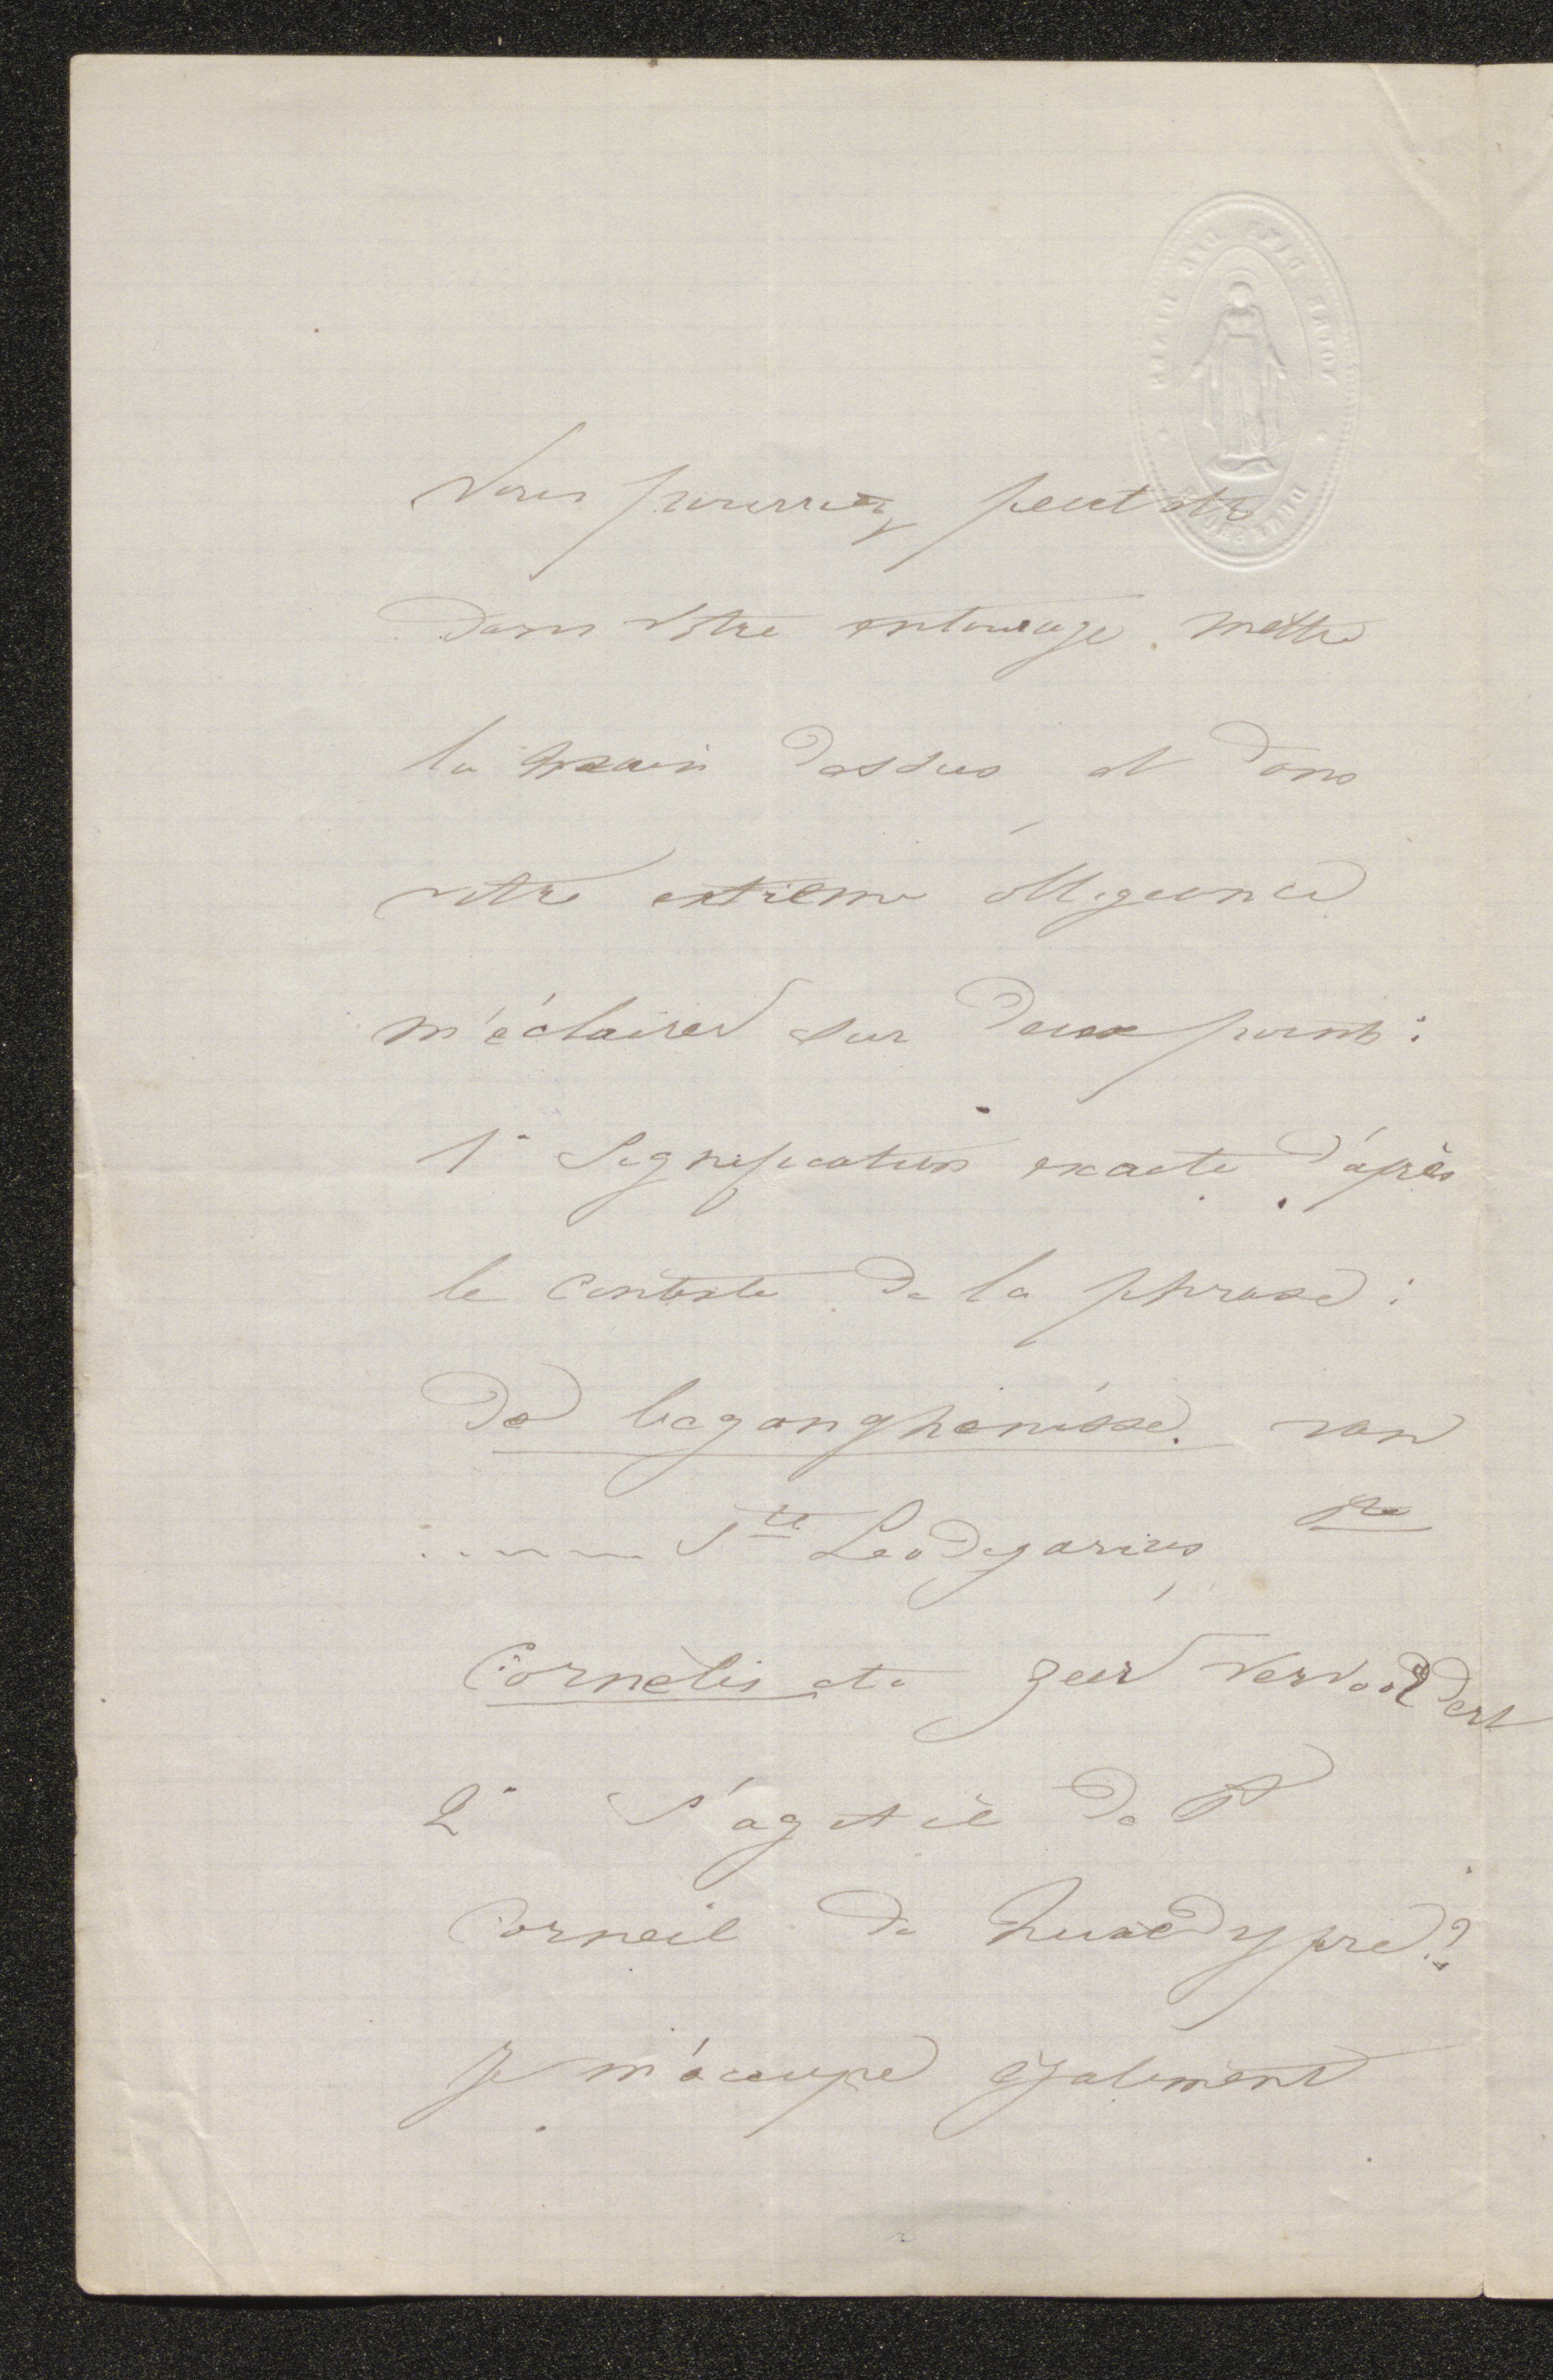 Vous pourriez peut etre
dans votre entourage mettre
la main dessus et dans
votre extrême obligeance
m'éclairer sur deux points :
1° Signification exacte d'après
le contexte de la phrase :
De beganghenisse van
....... Ste Leodegarius Ste
Cornelis etc zeer vervoordert
2° S'agit il de St
Corneil de Quaedypre ?
Je m'occupe également